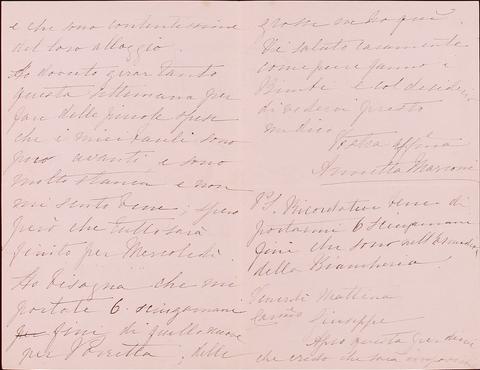 e che sono contentissime
del loro alloggio.
Ho dovuto girar tanto
questa settimana per
fare delle piccole spese
che i miei
poco avanti e sono
molto stanca e non
mi sento bene; spero
però che tutto sarà
finito per Mercoledì.
Ho bisogna che mi
portate 6. sciugamane
fini di quelle nuove
per ; delle
grosse ne ho qui.
Vi saluto caramente
come pure fanno i
Bimbi e col desiderio
di vedervi presto
mi dico
Vostra aff.ma
Annetta Marconi
P.S. Ricordatevi bene di
portarmi 6 sciugamani
fini che sono nell'
della Biancheria.
Venerdì Mattina
Giuseppe
Apro questa per dirvi
che credo che sarà